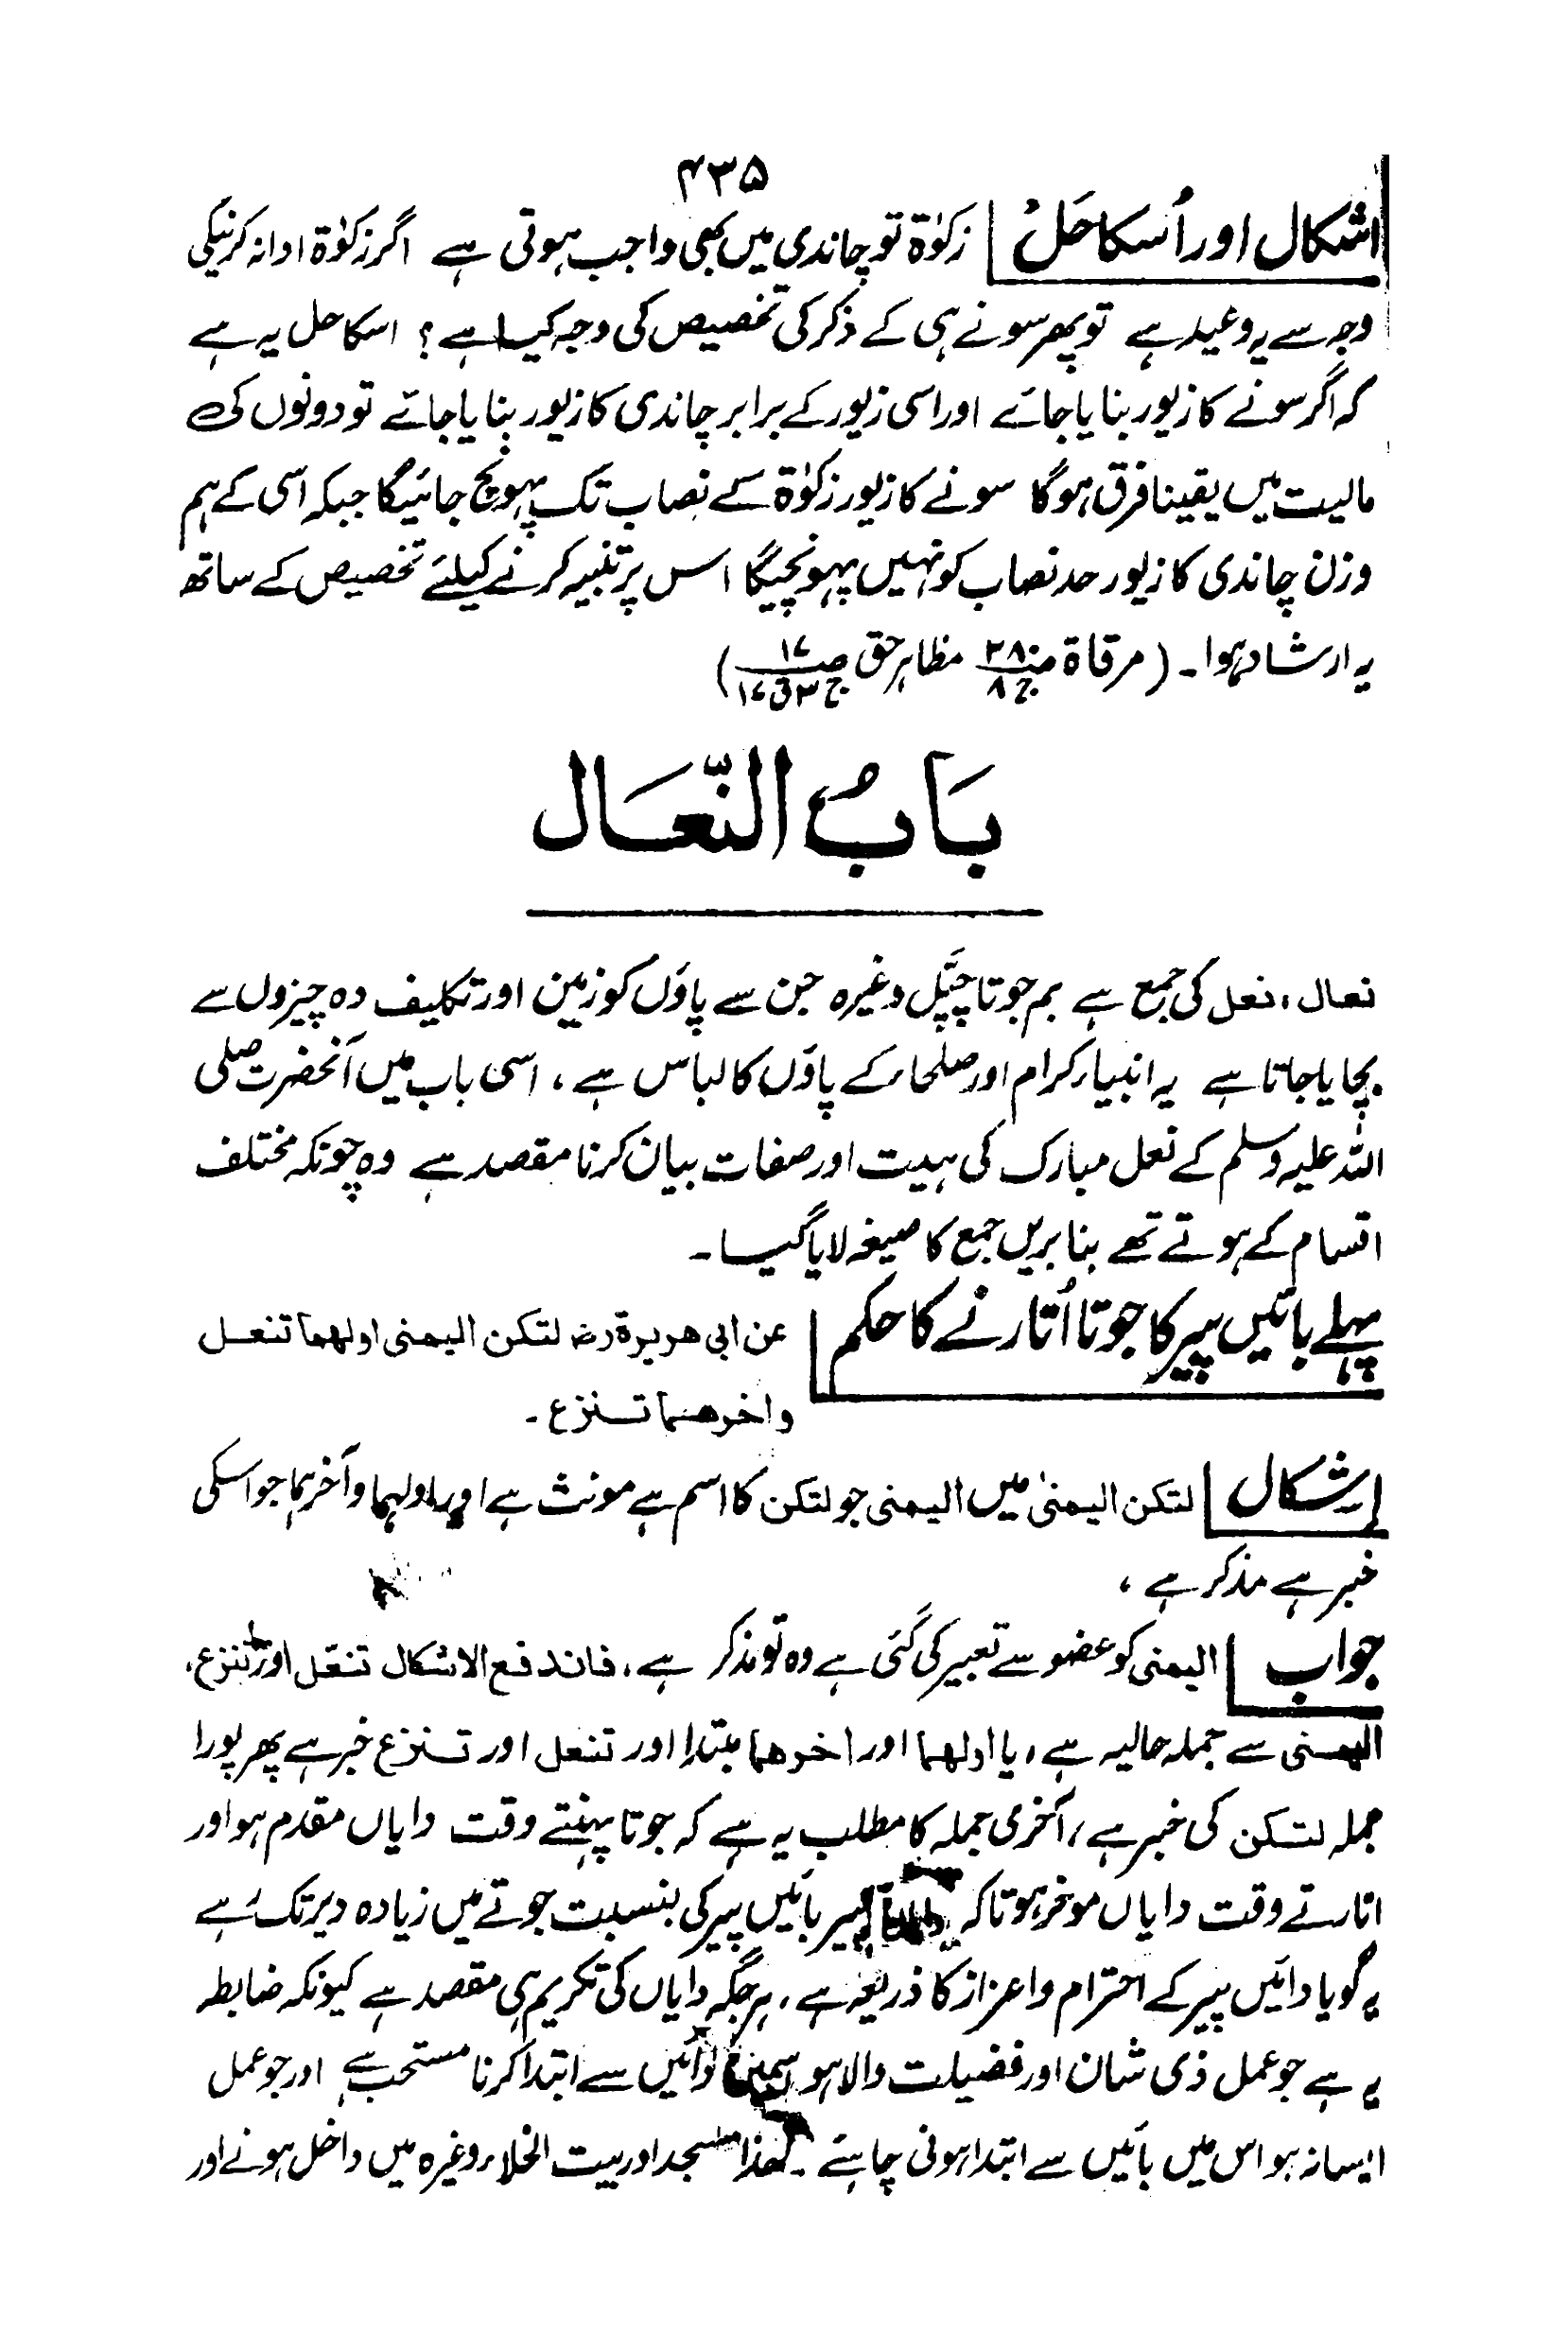 ۴۳۵
اشکال اور اُسکا حَل زکوٰۃ تو چاندی میں بھی واجب ہوتی ہے اگر زکوٰۃ ادا نہ کرنیکی
وجہ سے یہ وعید ہے تو پھر سونے ہی کے ذکر کی تخصیص کی وجہ کیا ہے؟ اسکا حل یہ ہے
کہ اگر سونے کا زیور بنایا جائے اور اسی زیور کے برابر چاندی کا زیور بنایا جائے تو دونوں کی
مالیت میں یقینا فرق ہوگا سونے کا زیور زکوٰۃ کے نصاب تک پہونچ جائیگا جبکہ اسی کے ہم
وزن چاندی کا زیور حد نصاب کو نہیں پہونچیگا اس پر تنبیہ کرنے کیلئے تخصیص کے ساتھ
یہ ارشاد ہوا۔ (مرقاۃ ص۲۸۰ ج۸ مظاہر حق ص۱۷ ج۳ ق۱۷)
بَابُ النِّعَال
نعال، نعل کی جمع ہے بم جوتا چپّل وغیرہ جن سے پاؤں کو زمین اور تکلیف دہ چیزوں سے
بچایا جاتا ہے یہ انبیاء کرام اور صلحاء کے پاؤں کا لباس ہے، اسی باب میں آنحضرت صلی
اللہ علیہ وسلم کے نعل مبارک کی ہیئت اور صفات بیان کرنا مقصد ہے وہ چونکہ مختلف
اقسام کے ہوتے تھے بنا بریں جمع کا صیغہ لایا گیا۔
پہلے بائیں پیر کا جوتا اُتارنے کا حکم عن ابی ھریرۃ رض لتکن الیمنی اولھما تنعل
واخرھما تنزع۔
اِشکال لتکن الیمنیٰ میں الیمنی جو لتکن کا اسم ہے مونث ہے اور اولہما وآخرہما جو اسکی
خبر ہے مذکر ہے،
جواب الیمنی کو عضو سے تعبیر کی گئی ہے وہ تو مذکر ہے، فاندفع الاشکال تنعل اور تنزع،
الیمنی سے جملہ حالیہ ہے، یا اولھما اور اخرھما مبتدا اور تنعل اور تنزع خبر ہے پھر پورا
جملہ لتکن کی خبر ہے، آخری جملہ کا مطلب یہ ہے کہ جوتا پہنتے وقت دایاں مقدم ہو اور
اتارتے وقت دایاں موخر ہو تاکہ پیر بائیں پیر کی بنسبت جوتے میں زیادہ دیر تک رہے
یہ گویا دائیں پیر کے احترام واعزاز کا ذریعہ ہے، ہر جگہ دایاں کی تکریم ہی مقصد ہے کیونکہ ضابطہ
یہ ہے جو عمل ذی شان اور فضیلت والا ہو دائیں سے ابتدا کرنا مستحب ہے اور جو عمل
ایسا نہ ہو اس میں بائیں سے ابتدا ہونی چاہئے۔ لھذا مسجد اور بیت الخلاء وغیرہ میں داخل ہونے اور